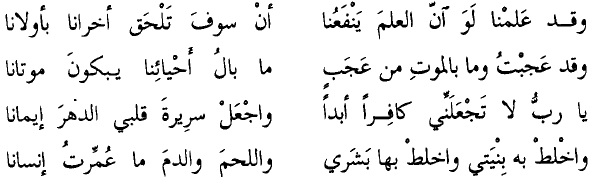 وقـد عَلمْنا لَوَ آنّ العلمَ يَنْفَعُنا أنْ سوفَ تَلْحَق أخرانا بأولانا
وقد عَجبْتُ وما بالموتِ من عَجَبٍ ما بالُ أَحْيائِنا يـبكونَ موتانا
يا ربُّ لا تَجْعَلَنِّي كافِـراً أبداً واجْعَلْ سرِيرةَ قلبي الدهرَ إيمانا
واخْلطْ به بِنْيَتي واخلطْ بها بَشَري واللحمَ والدمَ ما عُمِّرتُ إنسانا